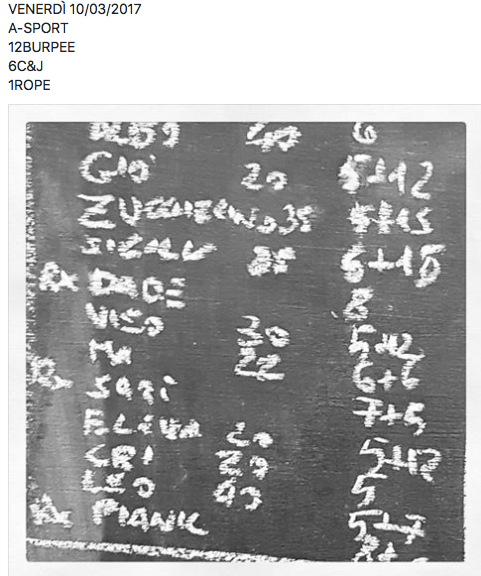 VENERDÌ 10/03/2017
A-SPORT
12BURPEE
6C&J
1ROPE
40 6
GIO' 20 5+12
35 5+15
6+15
Rx DADE 8
VIEO 30 5+12
22 6+6
Rx SARI 7+5
ELIUA 20
CRI 20 5+12
LEO 40 5
Rx FIANK 5+7